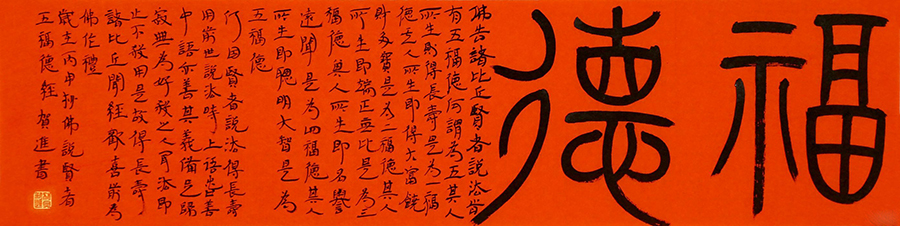 福德
佛告諸比丘賢者說法時
有五福德何謂為五其人
所生則得長壽是為一福
德其人所生即得大富饒
財多寶是為二福德其人
所生即端正無比是為三
福德其人所生即名譽
遠聞是為四福德其人
所生即聰明大智是為
五福德
何因賢者說法得長壽
用前世說法時上語亦善
中語亦善其義備足歸
寂無為好殺之人聞法即
止不殺用是故得長壽
諸比丘聞經歡喜前為
佛作禮
歲在丙申抄佛說賢者
五福德經 賀進書